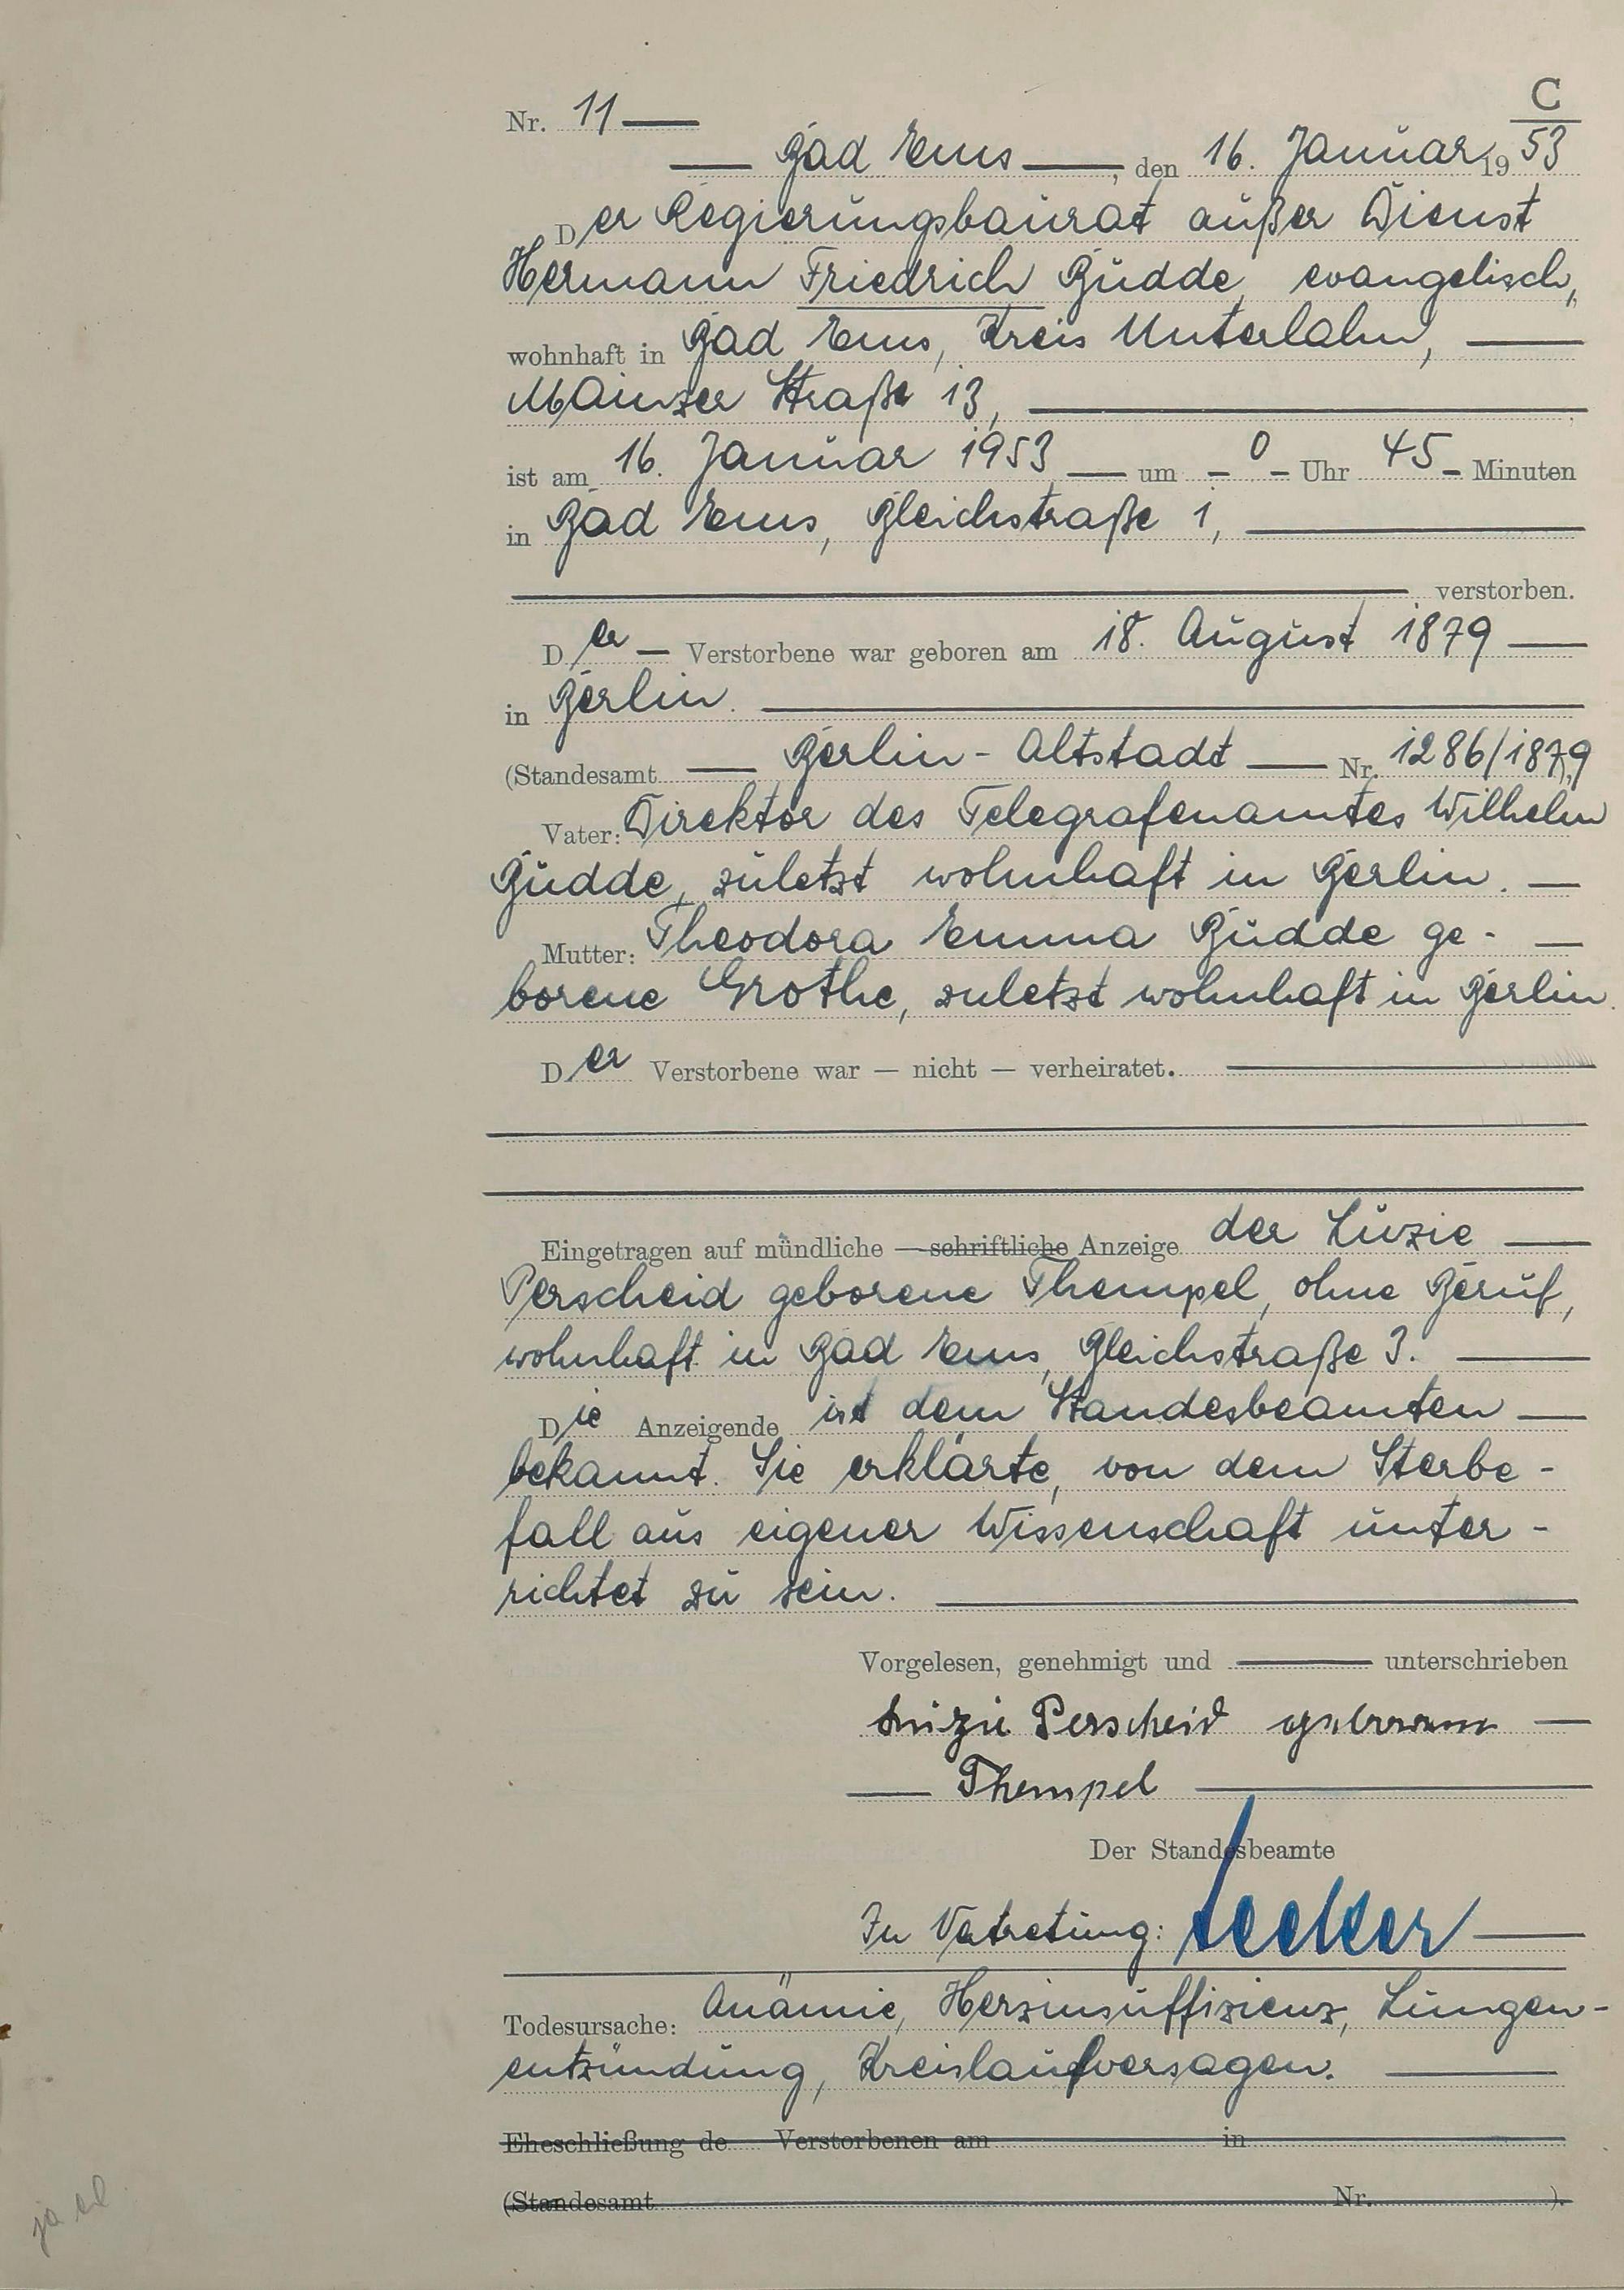 C
Nr. 11
Bad Ems, den 16. Januar 1953
Der Regierungsbaurat außer Dienst
Hermann Friedrich Budde, evangelisch,
wohnhaft in Bad Ems, Kreis Unterlahn,
Mainzer Straße 13,
ist am 16. Januar 1953 um 0 Uhr 45 Minuten
in Bad Ems, Bleichstraße 1,
verstorben.
Der Verstorbene war geboren am 18. August 1879
in Berlin.
(Standesamt Berlin-Altstadt Nr. 1286/1879)
Vater: Direktor des Telegrafenamtes Wilhelm
Budde, zuletzt wohnhaft in Berlin.
Mutter: Theodora Emma Budde ge-
borene Grothe, zuletzt wohnhaft in Berlin.
Der Verstorbene war — nicht — verheiratet.
Eingetragen auf mündliche — schriftliche Anzeige der Luzie
Perscheid geborene Thempel, ohne Beruf,
wohnhaft in Bad Ems, Bleichstraße 3.
Die Anzeigende ist dem Standesbeamten
bekannt. Sie erklärte, von dem Sterbe-
fall aus eigener Wissenschaft unter-
richtet zu sein.
Vorgelesen, genehmigt und unterschrieben
Luzie Perscheid geborene
Thempel
Der Standesbeamte
In Vertretung:
Todesursache: Anämie, Herzinsuffizienz, Lungen-
entzündung, Kreislaufversagen.
Eheschließung de Verstorbenen am in
(Standesamt Nr. ).